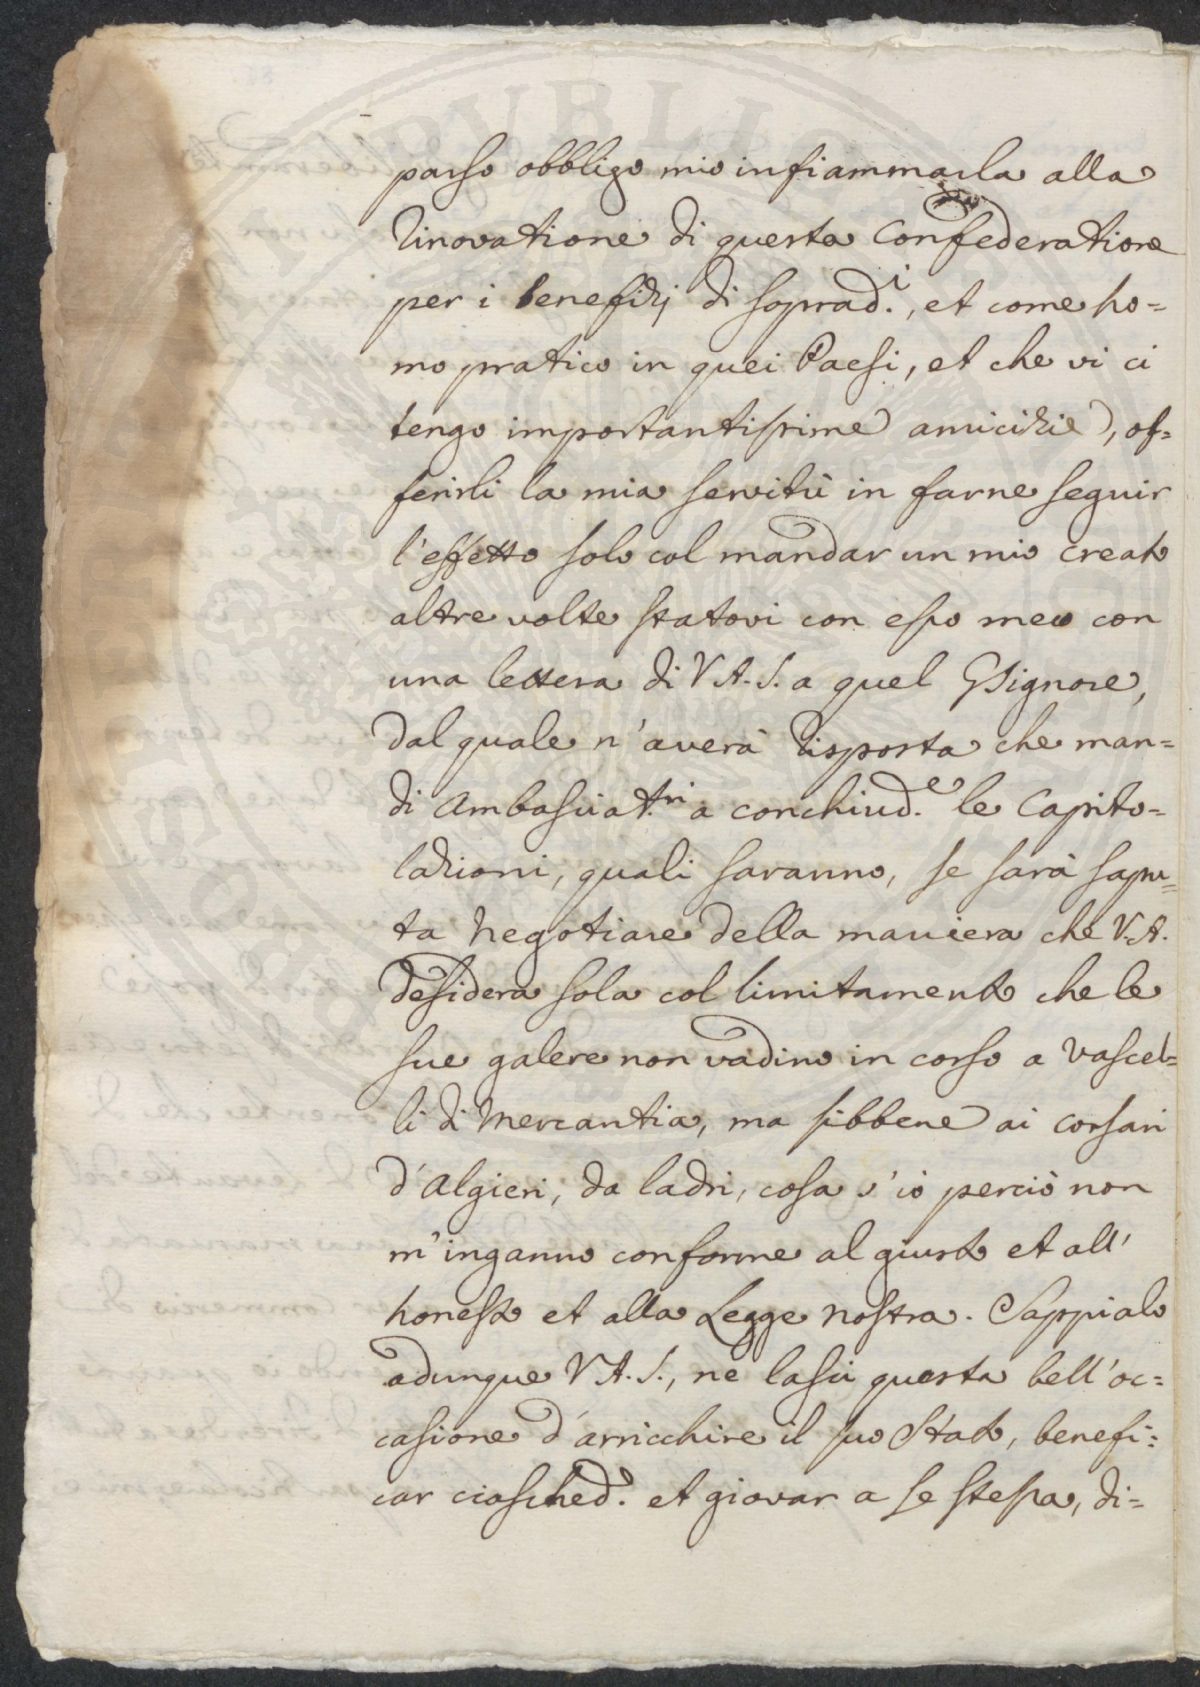 parso obbligo mio infiammarla alla
rinovatione di questa Confederatione
per i benefizj di soprad.i, et come ho=
mo pratico in quei Paesi, et che vi ci
tengo importantissime amicizie, of=
ferirli la mia servitù in farne seguir
l'effetto solo col mandar un mio creato
altre volte statovi con esso meco con
una lettera di V.A.S. a quel G Signore,
dal quale n'averà risposta che man=
di Ambasciat.ri a conchiud.e le Capito=
lazioni, quali saranno, se sarà sapu=
ta negotiare della maniera che V.A.
desidera sola col limitamento che le
sue galere non vadino in corso a vascel=
li di Mercantia, ma sibbene ai corsari
d'Algieri, da ladri, cosa s'io perciò non
m'inganno conforme al giusto et all'
honesto et alla Legge nostra. Sappialo
adunque V.A.S., ne lasci questa bell'oc=
casione d'arricchire il suo Stato, benefi=
car ciasched.o et giovar a se stessa, di=
PVBLI